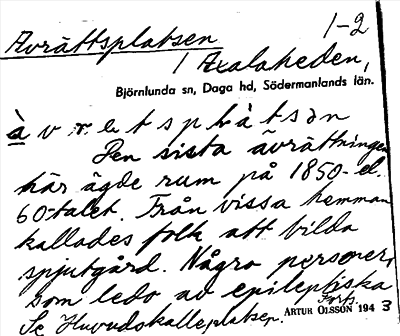 Avrättsplatsen 1-2
/ Axalaheden,
Björnlunda sn, Daga hd, Södermanlands län.
à v r e t s p l à t s ə n
Den sista avrättningen
här ägde rum på 1850- el.
60-talet. Från vissa hemman
kallades folk att bilda
spjutgård. Några personer,
som ledo av epileptiska
Forts.
Se Huvudskalleplatsen. ARTUR OLSSON 1943